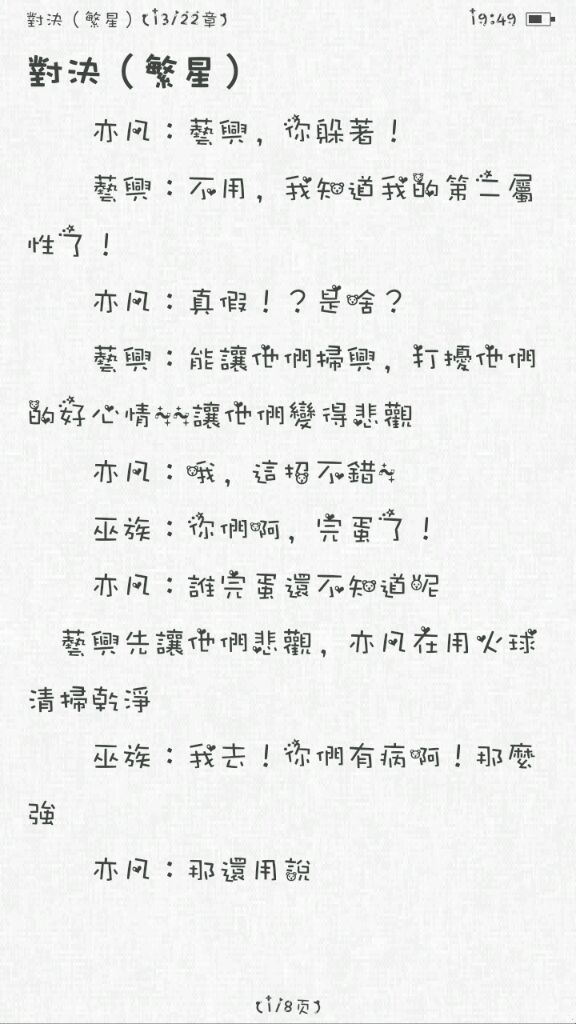 對決（繁星）(13/22章)
19:49
對決（繁星）
亦凡：藝興，你躲著！
藝興：不用，我知道我的第二屬
性了！
亦凡：真假！？是啥？
藝興：能讓他們掃興，打擾他們
的好心情~~讓他們變得悲觀
亦凡：哦，這招不錯~
巫族：你們啊，完蛋了！
亦凡：誰完蛋還不知道呢
藝興先讓他們悲觀，亦凡在用火球
清掃乾淨
巫族：我去！你們有病啊！那麼
強
亦凡：那還用說
(1/8页)